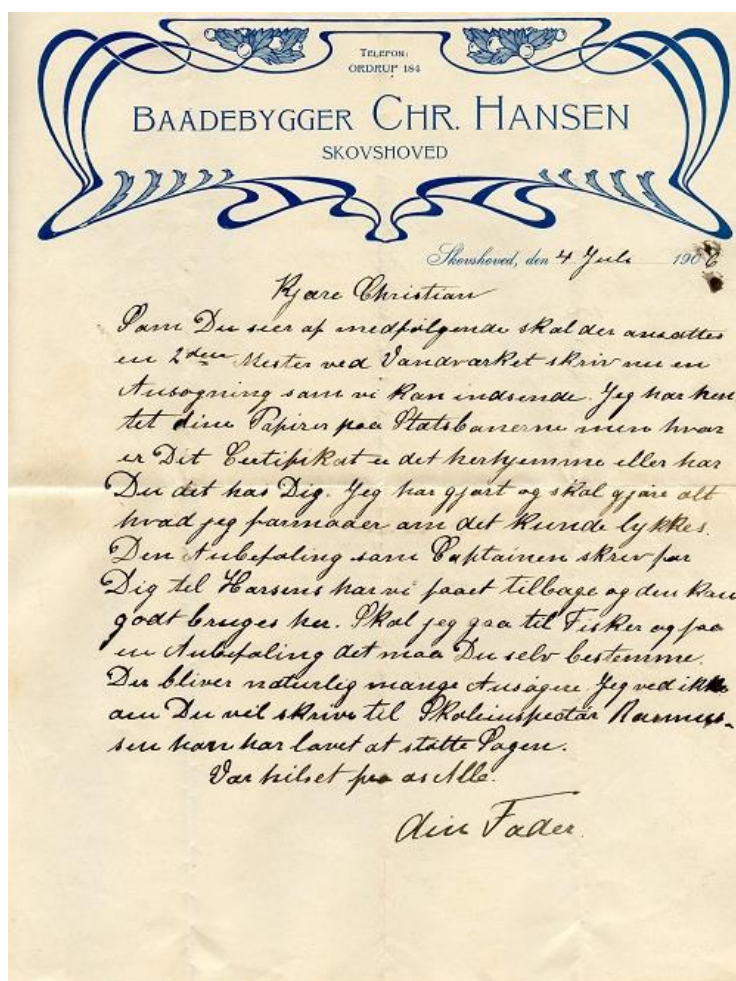 TELEFON:
ORDRUP 184
BAADEBYGGER CHR. HANSEN
SKOVSHOVED
Skovshoved, den 4 Juli 1906
Kjære Christian
Som Du seer af medfølgende skal der ansættes
en 2den Mester ved Vandværket skriv nu en
Ansøgning som vi kan indsende. Jeg har hen
tet dine Papirer paa Statsbanerne men hvor
er Dit Certifikat er det herhjemme eller har
Du det hos Dig. Jeg har gjort og skal gjøre alt
hvad jeg formaaer om det kunde lykkes.
Den Anbefaling som Captainen skrev for
Dig til Horsens har vi faaet tilbage og den kan
godt bruges her. Skal jeg gaa til Fisker og faa
en Anbefaling det maa Du selv bestemme.
Der bliver naturlig mange Ansøgere Jeg ved ikke
om Du vil skrive til Skoleinspectør Rasmus-
sen han har lovet at støtte Sagen.
Vær hilset fra os Alle.
din Fader.